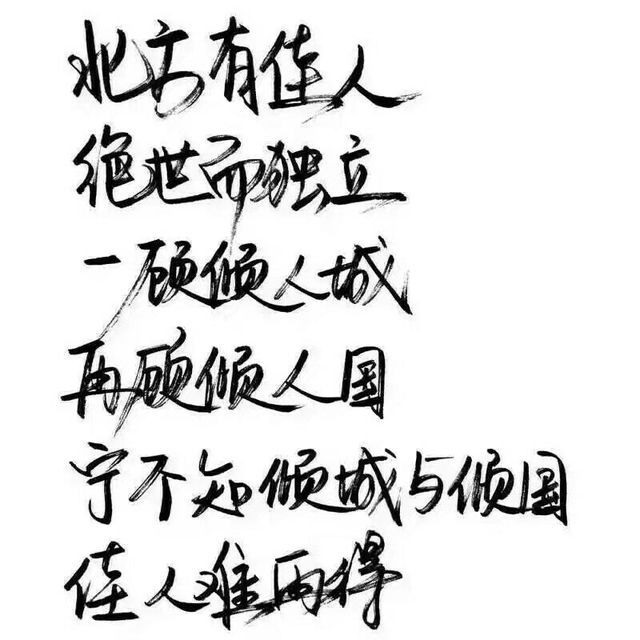 北方有佳人
绝世而独立
一顾倾人城
再顾倾人国
宁不知倾城与倾国
佳人难再得